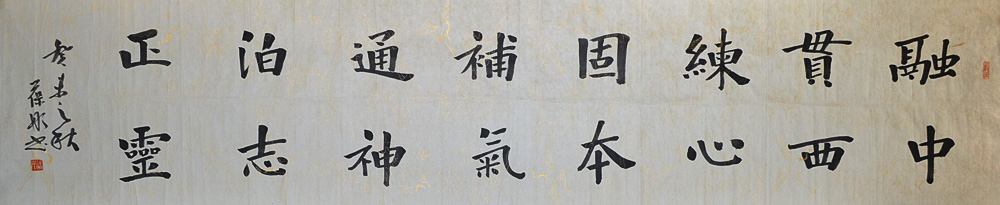 融中
貫西
練心
固本
補氣
通神
泊志
正靈
癸未之秋
葆彤書